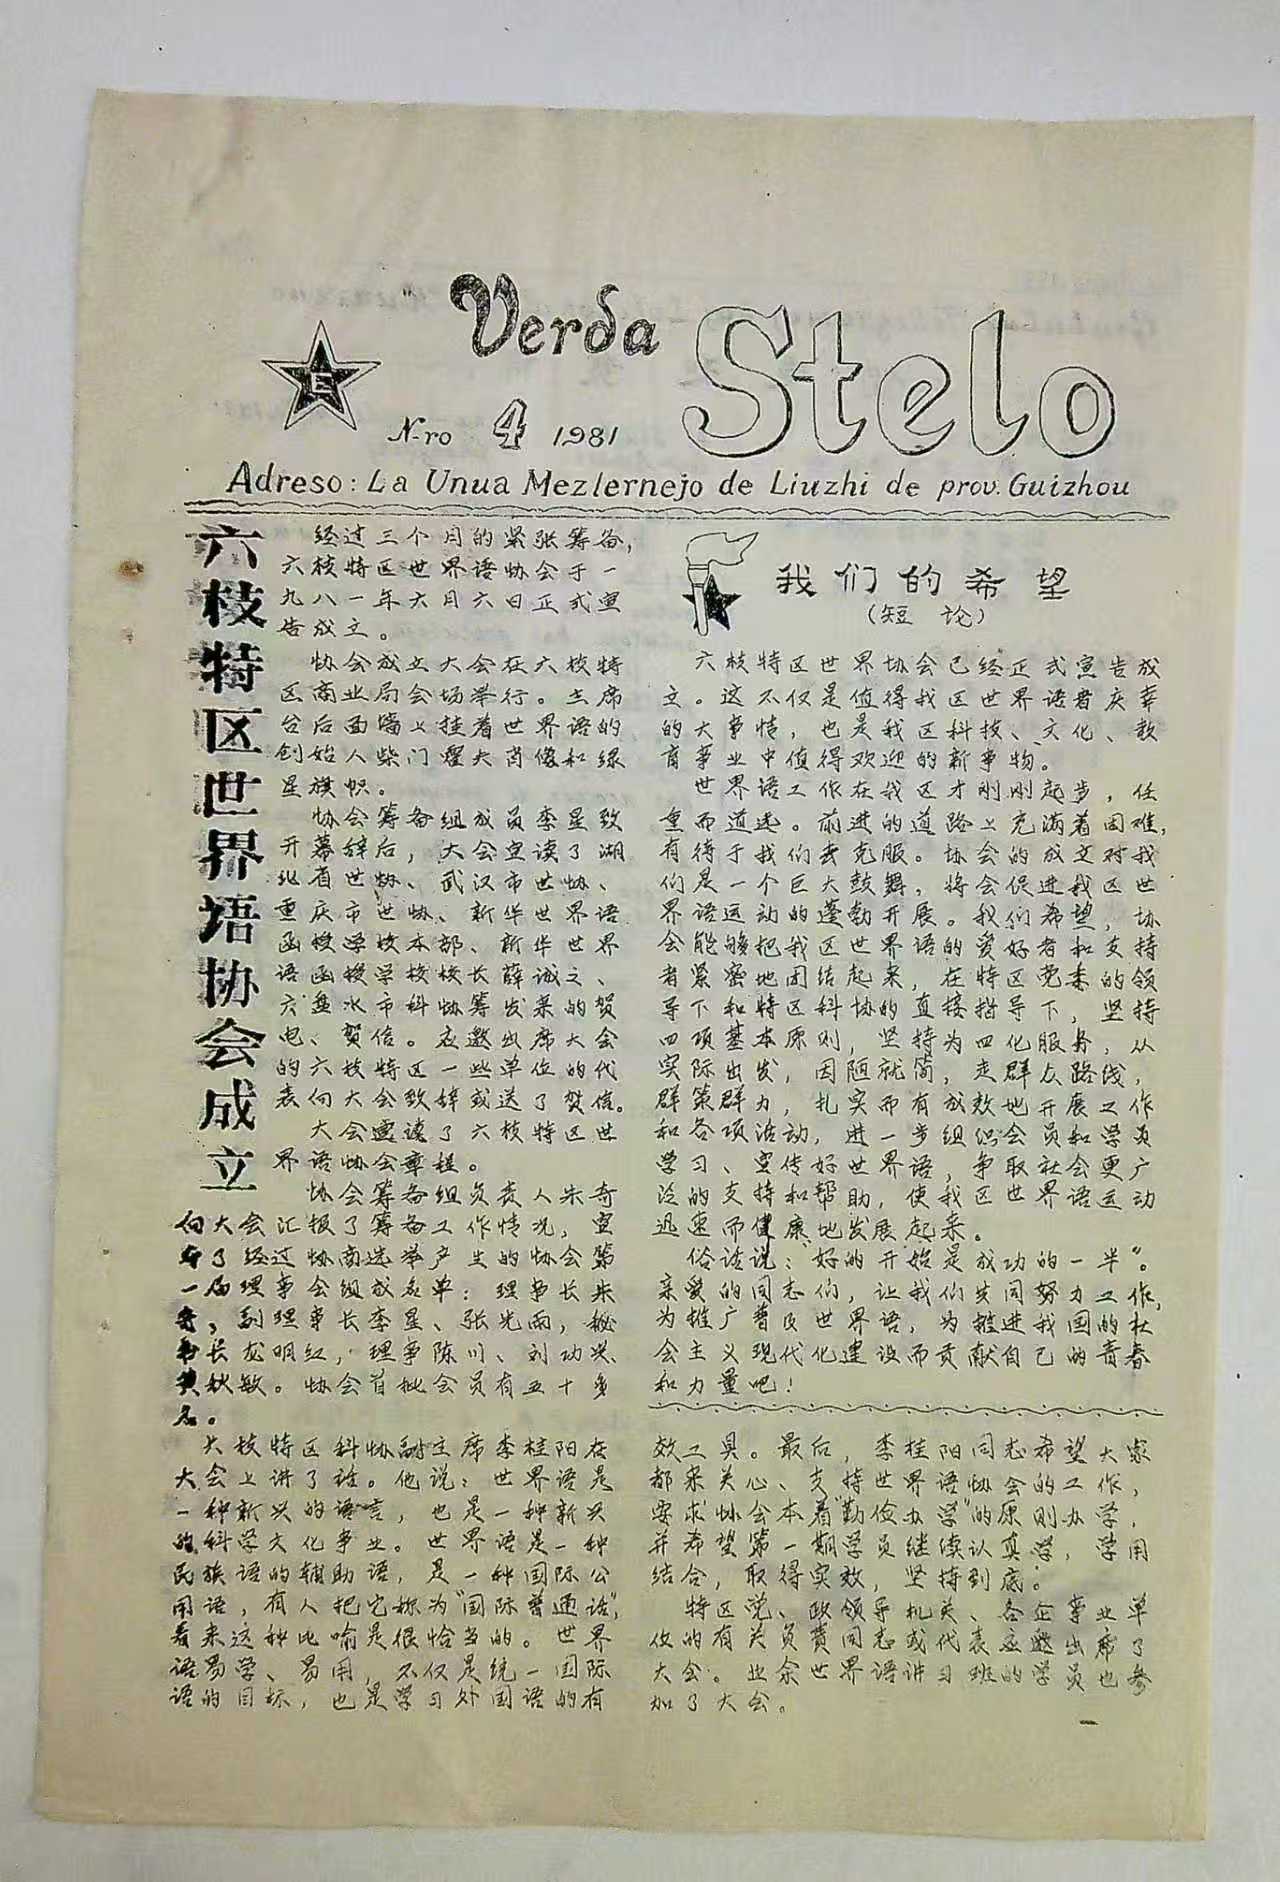 Verda Stelo
E
N-ro 4 1981
Adreso: La Unua Mezlernejo de Liuzhi de prov. Guizhou
六枝特区世界语协会成立
经过三个月的紧张筹备，
六枝特区世界语协会于一
九八一年六月六日正式宣
告成立。
协会成立大会在六枝特
区商业局会场举行。主席
台后面墙上挂着世界语的
创始人柴门霍夫肖像和绿
星旗帜。
协会筹备组成员李星致
开幕辞后，大会宣读了湖
北省世协、武汉市世协、
重庆市世协、新华世界语
函授学校本部、新华世界
语函授学校校长薛诚之、
六盘水市科协筹发来的贺
电、贺信。应邀出席大会
的六枝特区一些单位的代
表向大会致辞或送了贺信。
大会宣读了六枝特区世
界语协会章程。
协会筹备组负责人朱奇
向大会汇报了筹备工作情况，宣
布了经过协商选举产生的协会第
一届理事会组成名单：理事长朱
奇，副理事长李星、张光雨，秘
书长龙明红，理事陈川、刘功兴、
黄秋敏。协会首批会员有五十多
名。
六枝特区科协副主席李桂阳在
大会上讲了话。他说：世界语是
一种新兴的语言，也是一种新兴
的科学文化事业。世界语是一种
民族语的辅助语，是一种国际公
用语，有人把它称为“国际普通话”，
看来这种比喻是很恰当的。世界
语易学、易用，不仅是统一国际
语的目标，也是学习外国语的有
效工具。最后，李桂阳同志希望大家
都来关心、支持世界语协会的工作，
要求协会本着“勤俭办学”的原则办学，
并希望第一期学员继续认真学，学用
结合，取得实效，坚持到底。
特区党、政领导机关、各企事业单
位的有关负责同志或代表应邀出席了
大会。业余世界语讲习班的学员也参
加了大会。
我们的希望
（短论）
六枝特区世界协会已经正式宣告成
立。这不仅是值得我区世界语者庆幸
的大事情，也是我区科技、文化、教
育事业中值得欢迎的新事物。
世界语工作在我区才刚刚起步，任
重而道远。前进的道路上充满着困难，
有待于我们去克服。协会的成立对我
们是一个巨大鼓舞，将会促进我区世
界语运动的蓬勃开展。我们希望，协
会能够把我区世界语的爱好者和支持
者紧密地团结起来，在特区党委的领
导下和特区科协的直接指导下，坚持
四项基本原则，坚持为四化服务，从
实际出发，因陋就简，走群众路线，
群策群力，扎实而有成效地开展工作
和各项活动，进一步组织会员和学员
学习、宣传好世界语，争取社会更广
泛的支持和帮助，使我区世界语运动
迅速而健康地发展起来。
俗话说：“好的开始是成功的一半”。
亲爱的同志们，让我们共同努力工作，
为推广普及世界语，为推进我国的社
会主义现代化建设而贡献自己的青春
和力量吧！